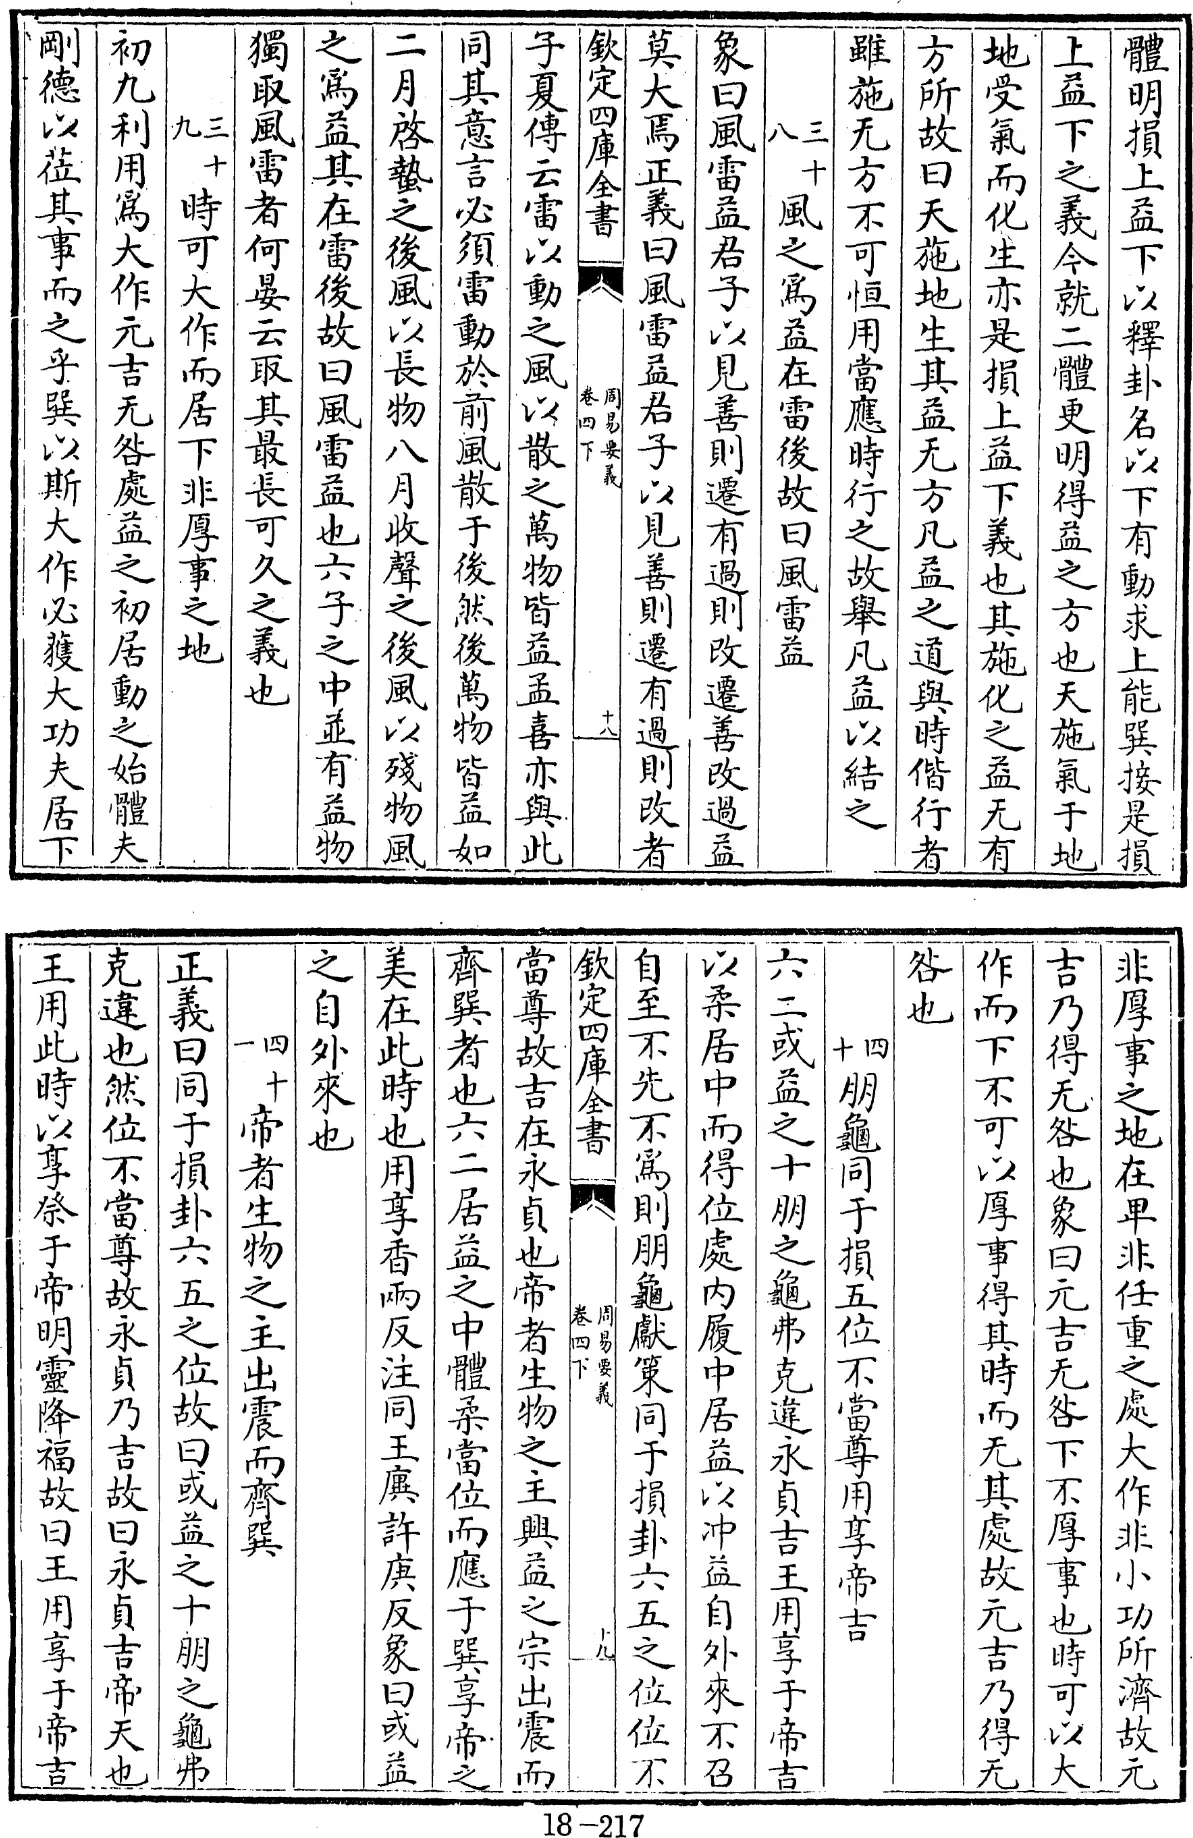 體明損上益下以釋卦名以下有動求上能巽接是損
上益下之義今就二體更明得益之方也天施氣于地
地受氣而化生亦是損上益下義也其施化之益无有
方所故曰天施地生其益无方凡益之道與時偕行者
雖施无方不可恒用當應時行之故舉凡益以結之
三十八 風之為益在雷後故曰風雷益
象曰風雷益君子以見善則遷有過則改遷善改過益
莫大焉正義曰風雷益君子以見善則遷有過則改者
欽定四庫全書 周易要義 卷四下 十八
子夏傳云雷以動之風以散之萬物皆益孟喜亦與此
同其意言必須雷動於前風散于後然後萬物皆益如
二月啓蟄之後風以長物八月收聲之後風以殘物風
之為益其在雷後故曰風雷益也六子之中並有益物
獨取風雷者何晏云取其最長可久之義也
三十九 時可大作而居下非厚事之地
初九利用為大作元吉无咎處益之初居動之始體夫
剛德以莅其事而之乎巽以斯大作必獲大功夫居下
非厚事之地在卑非任重之處大作非小功所濟故元
吉乃得无咎也象曰元吉无咎下不厚事也時可以大
作而下不可以厚事得其時而无其處故元吉乃得无
咎也
四十 朋龜同于損五位不當尊用享帝吉
六二或益之十朋之龜弗克違永貞吉王用享于帝吉
以柔居中而得位處内履中居益以冲益自外來不召
自至不先不為則朋龜獻策同于損卦六五之位位不
欽定四庫全書 周易要義 卷四下 十九
當尊故吉在永貞也帝者生物之主興益之宗出震而
齊巽者也六二居益之中體柔當位而應于巽享帝之
美在此時也用享香兩反注同王廙許庚反象曰或益
之自外來也
四十一 帝者生物之主出震而齊巽
正義曰同于損卦六五之位故曰或益之十朋之龜弗
克違也然位不當尊故永貞乃吉故曰永貞吉帝天也
王用此時以享祭于帝明靈降福故曰王用享于帝吉
18-217